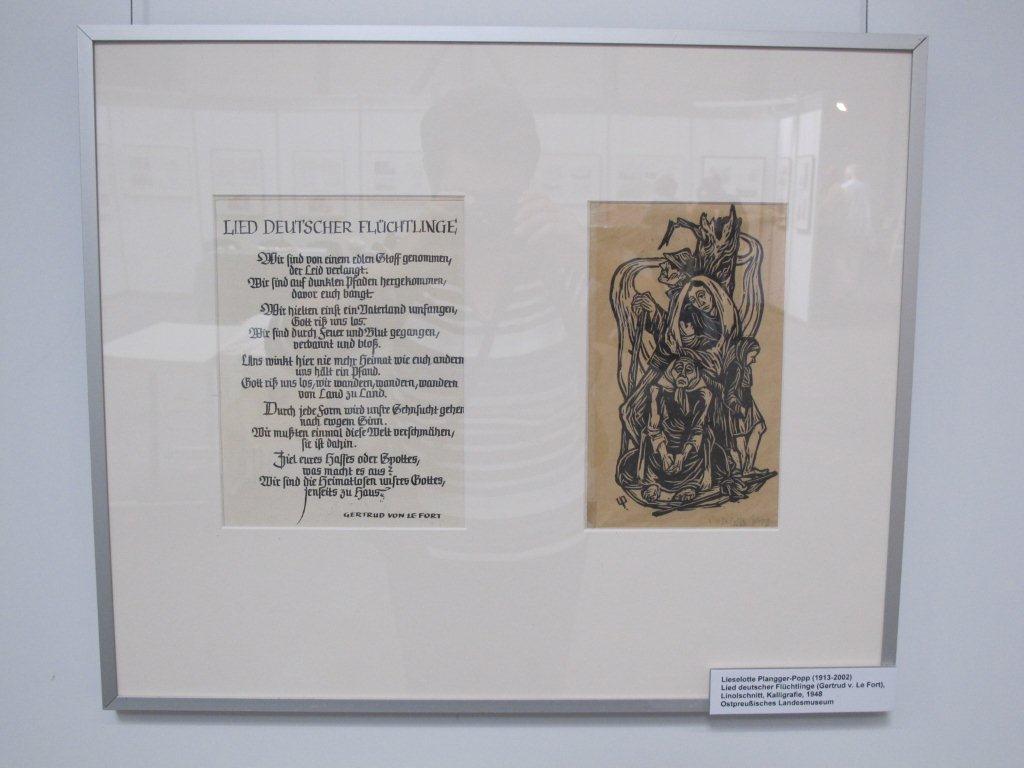 LIED DEUTSCHER FLÜCHTLINGE
Wir sind von einem edlen Stoff genommen,
der Leid verlangt.
Wir sind auf dunklen Pfaden hergekommen,
davor euch bangt.
Wir hielten einst ein Vaterland umfangen,
Gott riß uns los.
Wir sind durch Feuer und Blut gegangen,
verbannt und bloß.
Uns winkt hier nie mehr Heimat wie euch andern
uns hält ein Pfand.
Gott riß uns los, wir wandern, wandern, wandern
von Land zu Land.
Durch jede Form wird unsre Sehnsucht gehen
nach ewgem Sinn.
Wir mußten einmal diese Welt verschmähen,
sie ist dahin.
Ziel eures Hasses oder Spottes,
was macht es aus?
Wir sind die Heimatlosen unsres Gottes,
jenseits zu Haus.
GERTRUD VON LE FORT
Lieselotte Plangger-Popp (1913-2002)
Lied deutscher Flüchtlinge (Gertrud v. Le Fort),
Linolschnitt, Kalligrafie, 1948
Ostpreußisches Landesmuseum